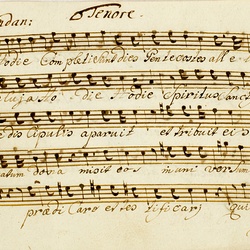 Tenore.
dan:
odie Completi sunt dies Pentecostes alle
luja Ho die Hodie Spiritus Sanct
discipulis aparuit et tribuit ei
atum dona misit eos in uni versum
prædi Care et tes tificari Qui